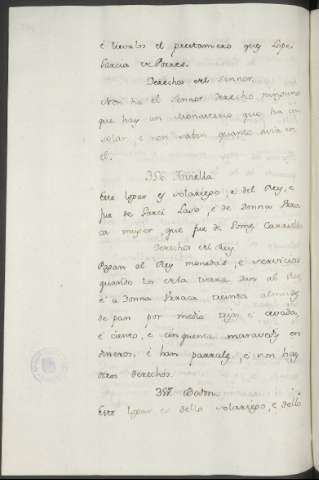 é lievalos el prestamero que es Lope
Garcia de Porres.
Derechos del Sennor.
Non ha el Sennor derecho ninguno
que hay un Monasterio que ha un
solar, é non saben quanto avia en
el.
Este logar es solariego, é del Rey, é
fue de Garci Laso, é de Donna Uraca
ca muger que fue de Lope
Derechos del Rey
Pagan al Rey monedas, é servicios
quando los de la tierra dan al Rey
é a Donna Uraca treinta almudes
de pan por medio trigo é cevada,
é é cinquenta maravedis en
dineros, é han é non hay
otros derechos.
Este logar es dello solariego, é dello